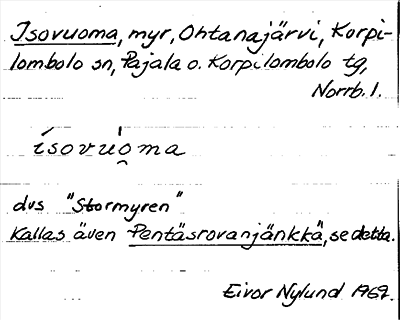 Isovuoma, myr, Ohtanajärvi, Korpi-
lombolo sn, Pajala o. Korpilombolo tg,
Norrb. l.
ísovuo̯ma
dvs "Stormyren"
Kallas även Pentäsrovanjänkkä, se detta.
Eivor Nylund 1969.